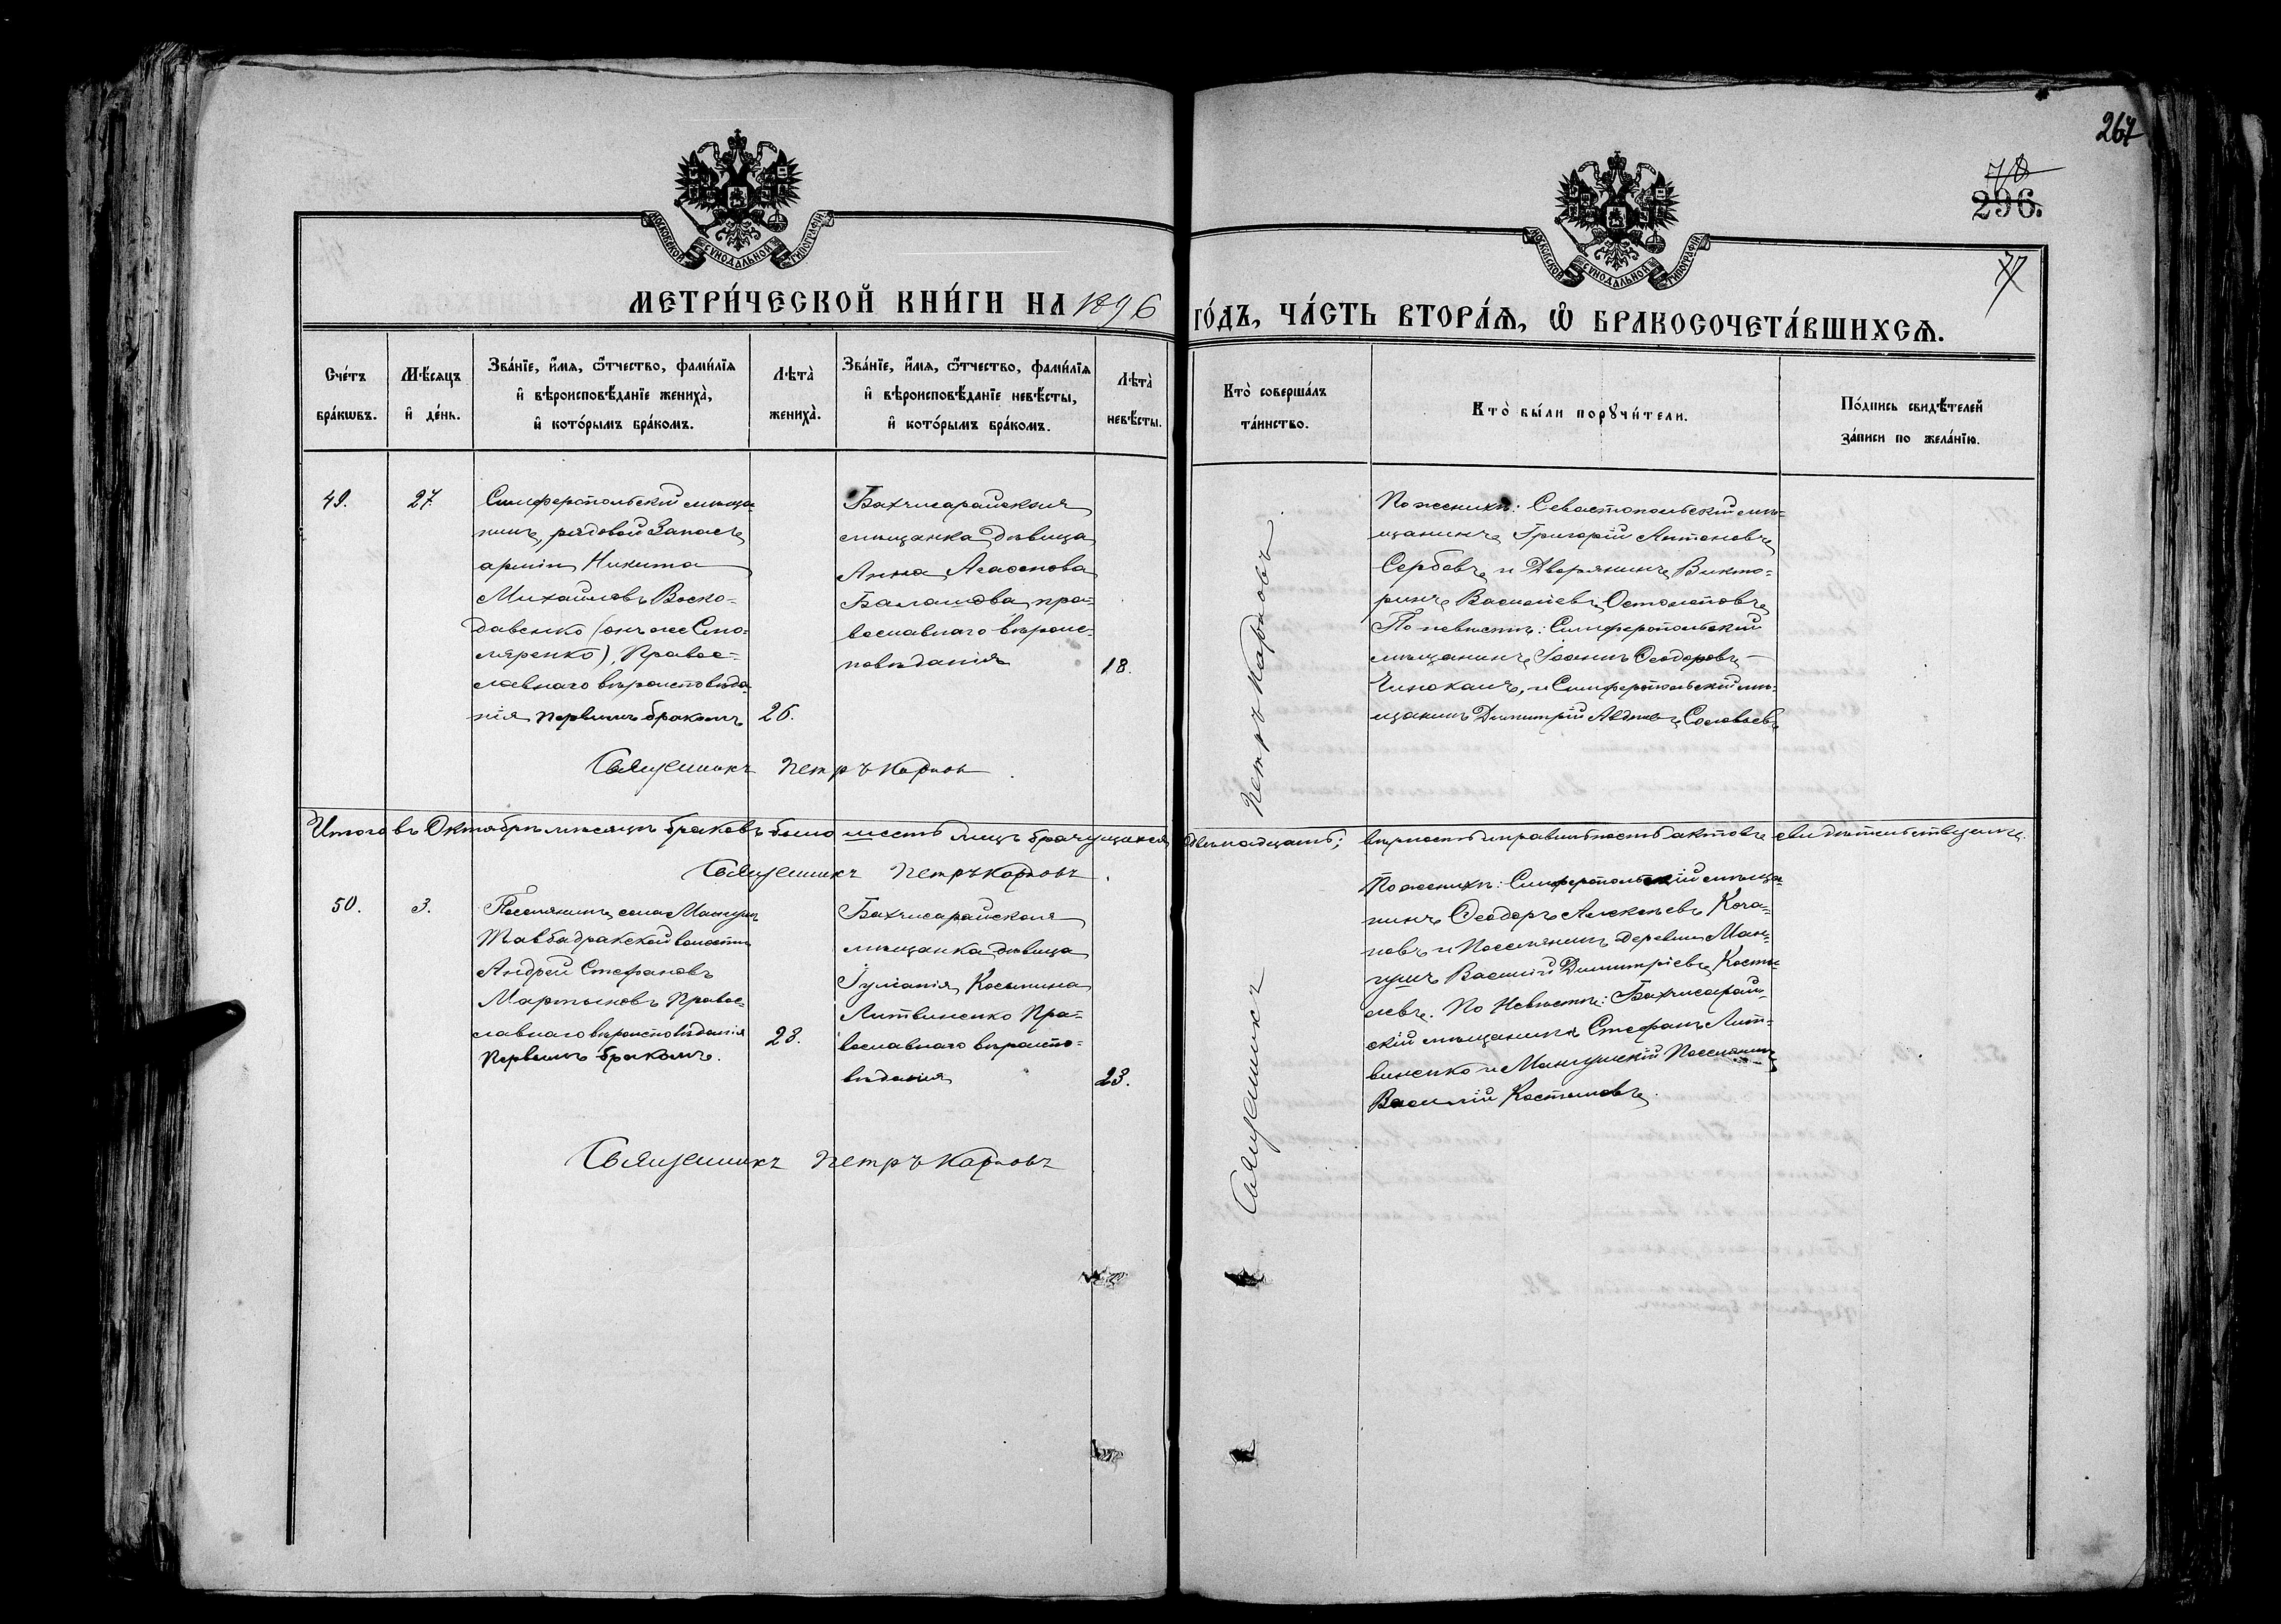 267
78
296.
77
МОСКОВСКОЙ СѴНОДАЛЬНОЙ ТИПОГРАФІИ
МОСКОВСКОЙ СѴНОДАЛЬНОЙ ТИПОГРАФІИ
МЕТРИ́ЧЕСКОЙ КНИ́ГИ НА 1896 ГО́ДЪ, ЧА́СТЬ ВТОРА́Ѧ, Ѡ҆ БРАКОСОЧЕТА́ВШИХСѦ.
Сче́тъ
бра́кѡвъ.
Мѣ́сяцъ
и҆ де́нь.
Зва́нїе, и҆́мѧ, ѻ҆́тчество, фами́лїѧ
и҆ вѣроисповѣ́данїе жениха̀,
и҆ кото́рымъ бра́комъ.
Лѣта̀
жениха̀.
Зва́нїе, и҆́мѧ, ѻ҆́тчество, фами́лїѧ
и҆ вѣроисповѣ́данїе невѣ́сты,
и҆ кото́рымъ бра́комъ.
Лѣта̀
невѣ́сты.
Кто̀ соверша́лъ
та́инство.
Кто̀ бы́ли порꙋчи́тели.
По́дпись свидѣ́телей
за́писи по жела́нїю.
49.
27.
Симферопольскій мѣща-
нинъ, рядовой Запаса
арміи Никита
Михайловъ Воско-
давенко (онъ же Сто-
ляренко), Правос-
лавнаго вѣроисповѣда
нія первымъ бракомъ
26.
Бахчисарайская
мѣщанка дѣвица
Анна Агаѳонова
Балашова, пра-
вославнаго вѣроис-
повѣданія
18.
По женихѣ: Севастопольскій мѣ-
щанинъ Григорій Антоновъ
Сербовъ и Дворянинъ Викто-
ринъ Васильевъ Остолоповъ
По невѣстѣ: Симферопольскій
мѣщанинъ Іоаннъ Ѳеодоровъ
и Симферопольскій мѣ-
щанинъ Димитрій Соловьевъ
Священникъ Петръ Карповъ
Итого въ Октябрѣ мѣсяцѣ браковъ было шесть лицъ брачущихся двѣнадцать; вѣрность и правильность актовъ свидѣтельствуемъ.
Священникъ Петръ Карповъ
50.
3.
Поселянинъ села Мангушъ
Тавбадракской волости
Андрей Стефановъ
Мартыновъ Правос-
лавнаго вѣроисповѣданія
Первымъ бракомъ.
23.
Бахчисарайская
мѣщанка дѣвица
Іуліанія Косьмина
Литвиненко Пра-
вославнаго вѣроиспо-
вѣданія
23.
По женихѣ: Симферопольскій мѣща-
нинъ Ѳеодоръ Алексѣевъ Коча-
новъ и Поселянинъ деревни Ман-
гушъ Василій Димитріевъ Косты-
левъ. По Невѣстѣ: Бахчисарай-
скій мѣщанинъ Стефанъ Лит-
виненко и Мангушскій Поселянинъ
Василій
Священникъ Петръ Карповъ
Священникъ Петръ Карповъ